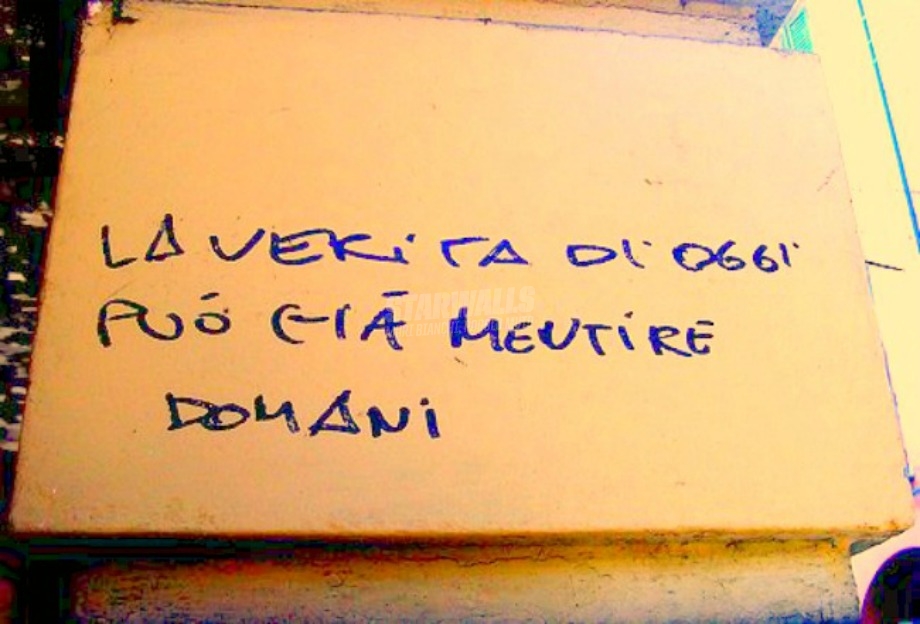 LA VERITA DI OGGI
PUÓ GIÁ MENTIRE
DOMANI
STARWALLS